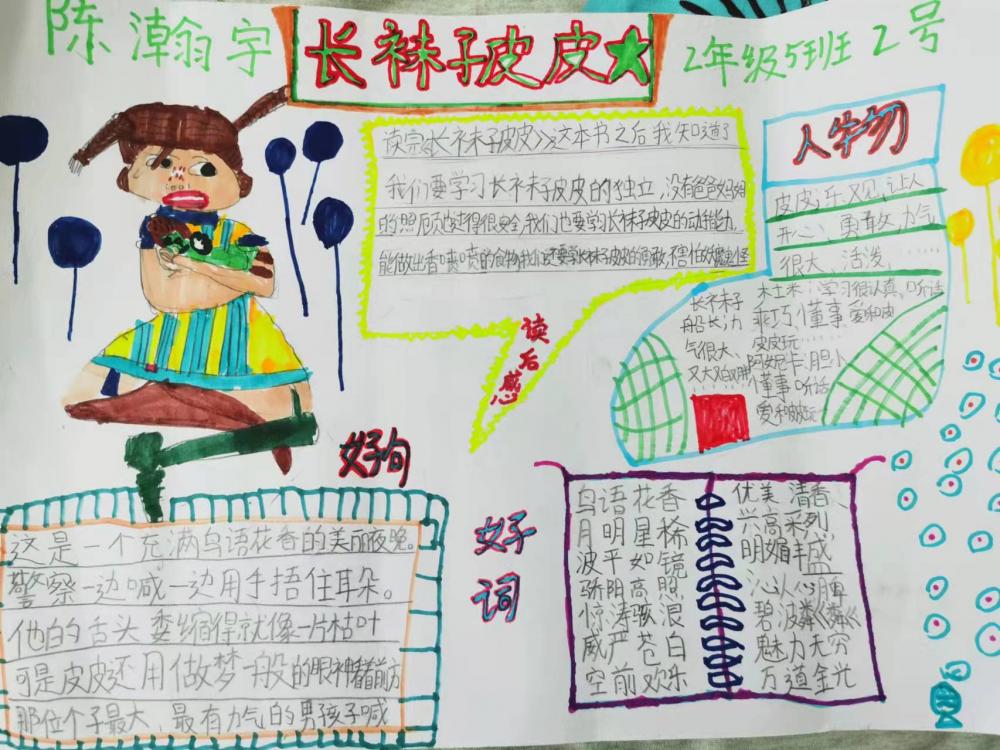 陈瀚宇
长袜子皮皮
2年级5班 2号
读完《长袜子皮皮》这本书之后我知道了
我们要学习长袜子皮皮的独立，没有爸爸妈妈
的照顾过得很安全，我们也要学长袜子皮皮的动手能力，
能做出香喷喷的食物，我们还要学长袜子皮皮的勇敢，不害怕妖魔鬼怪
读后感
人物
皮皮：乐观、让人
开心、勇敢、力气
很大、活泼、……
长袜子
船长：力
气很大、
又大又白又胖
木土米：学习很认真、听话
乖巧、懂事、爱和皮
皮玩……
阿妮卡：胆小
懂事、听话
爱和皮皮玩……
好句
这是一个充满鸟语花香的美丽夜晚。
警察一边喊一边用手捂住耳朵。
他的舌头委缩得就像一片枯叶
可是皮皮还用做梦一般的眼神看着前方
那位个子最大、最有力气的男孩子喊
好词
鸟语花香
月明星稀
波平如镜
骄阳高照
惊涛骇浪
威严苍白
空前欢乐
优美 清香
兴高采列
明媚丰盛
沁人心脾
碧波粼粼
魅力无穷
万道金光